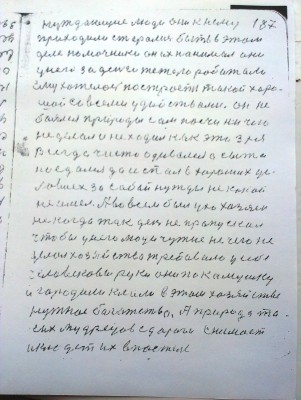 нуждающие люди они к нему 187
приходили старались быть в этом
деле помочники он их нанимал они
у него за деньги тежело работали
ему хотелось построеть такой хоро-
шой со всеми удопствами. он не
боялся природы сам почти ничего
не делал а не ходил как это зря
Всегда чисто одевался сыто
поедал да и спал в хороших ус-
ловиях за сабой нужды не какой
не имел. А во всем был ухозяин
не когда так день не пропускал
чтобы у него люди чутие не чего не
делали хозяйство требовало у себя
человековы руки они по камушку
и городили клали в этом хозяйстве
нужное богатство. А природа та-
ких мудрецов с дороги снимает
и кладет их в постель